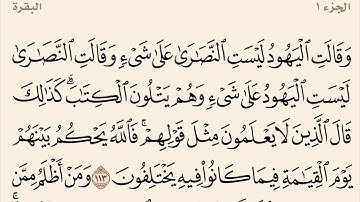 الجزء ١ البقرة
وَقَالَتِ ٱلۡيَهُودُ لَيۡسَتِ ٱلنَّصَٰرَىٰ عَلَىٰ شَيۡءٖ وَقَالَتِ ٱلنَّصَٰرَىٰ
لَيۡسَتِ ٱلۡيَهُودُ عَلَىٰ شَيۡءٖ وَهُمۡ يَتۡلُونَ ٱلۡكِتَٰبَۗ كَذَٰلِكَ
قَالَ ٱلَّذِينَ لَا يَعۡلَمُونَ مِثۡلَ قَوۡلِهِمۡۚ فَٱللَّهُ يَحۡكُمُ بَيۡنَهُمۡ
يَوۡمَ ٱلۡقِيَٰمَةِ فِيمَا كَانُواْ فِيهِ يَخۡتَلِفُونَ ١١٣ وَمَنۡ أَظۡلَمُ مِمَّن